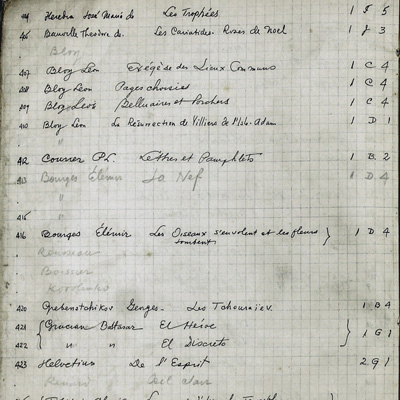 404 Heredia José Maria de Les Trophées 1 F 5
Banville Théodore de. Les Cariatides. Roses de Noël 1 J 3
Bloy
407 Bloy Léon Exégèse des Lieux Communs 1 C 4
408 Bloy Léon Pages choisies 1 C 4
409 Bloy Léon Belluaires et Porchers 1 C 4
410 Bloy Léon La Résurrection de Villiers de l'Isle-Adam 1 D 1
"
412 Courier P.L. Lettres et Pamphlets 1 B 2
413 Bourges Élémir La Nef 1 D 4
"
"
415
416 Bourges Élémir Les Oiseaux s'envolent et les fleurs } 1 D 4
tombent
Boissier
420 Grebenstchikov Georges - Les Tchouraïev. 1 B 4
421 { Gracian Baltasar El Héroe } 1 G 1
422 " " El Discreto
423 Helvetius De l'Esprit 2 G 1